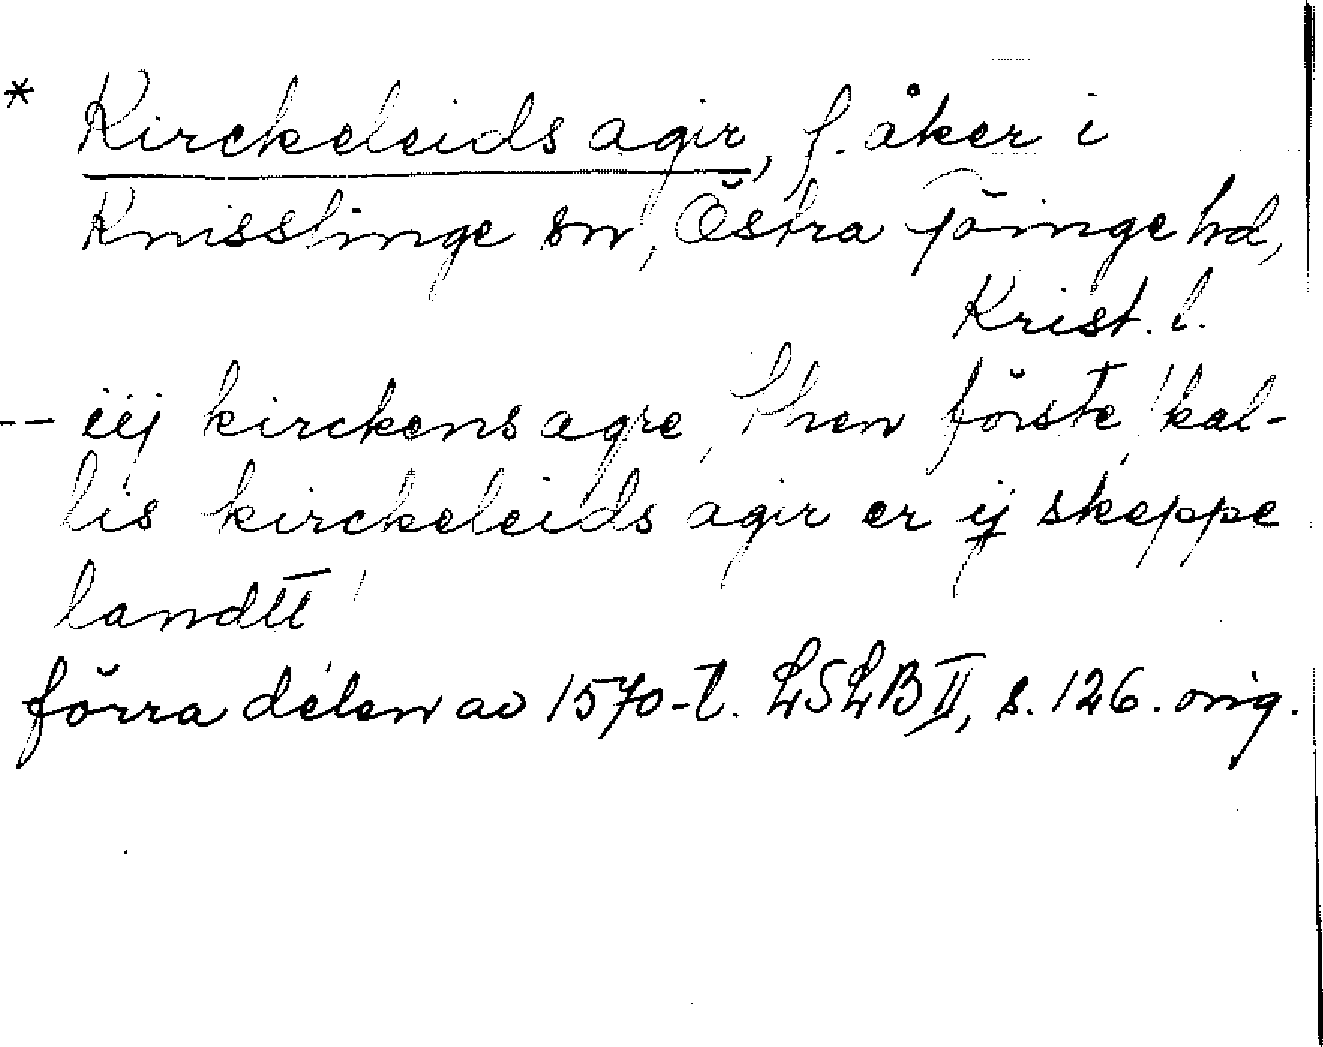 * Kirckeleids agir, f. åker i
Knisslinge sn, Östra Göinge hd,
Krist. l.
-- iij kirckens agre, then förste kal-
lis kirckeleids agir er ij skeppe
landtt
förra delen av 1570-t. LSLB II, s. 126. orig.